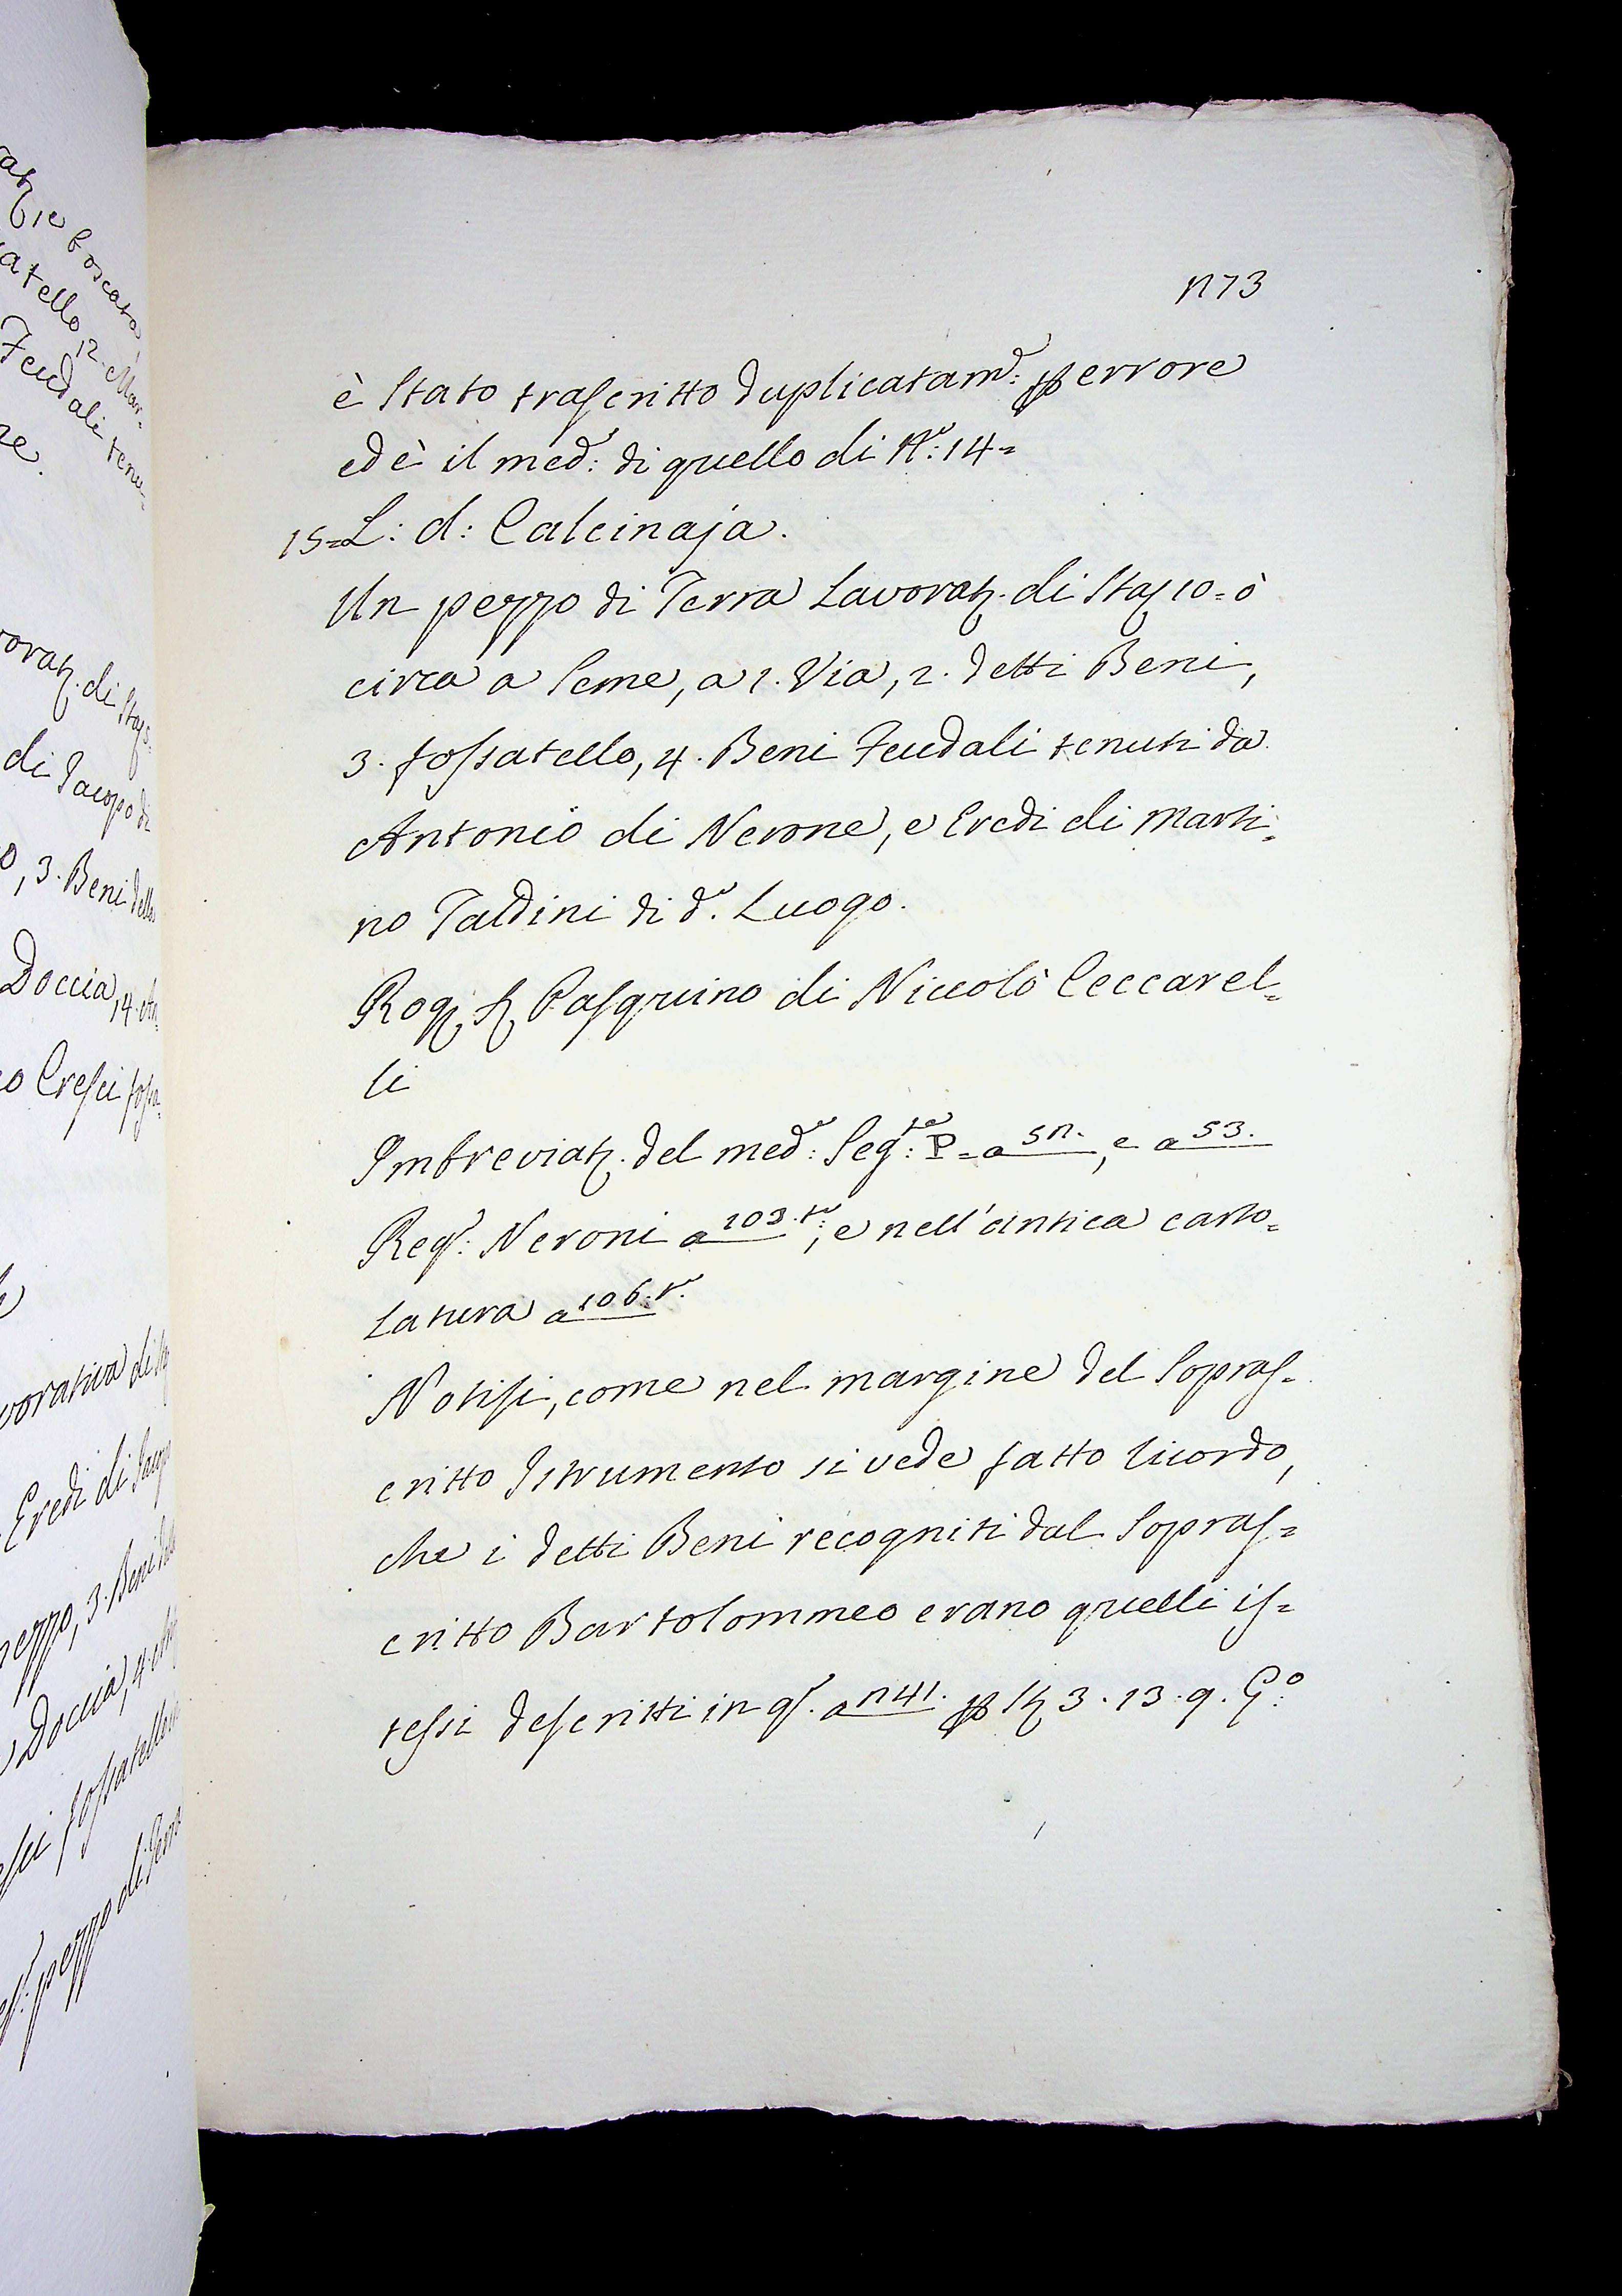 n73
è Stato trascritto duplicatam.e: per errore
ed è il med.o: di quello di N.o: 14=
15=L: d: Calcinaja.
Un pezzo di Terra Lavorat. di Sta 10= ò
circa a Seme, a 1. Via, 2. detti Beni,
3. fossatello, 4. Beni Feudali tenuti da
Antonio di Nerone, e Eredi di Marti=
no Taldini di d.o Luogo.
Rog. S. Pasquino di Niccolò Ceccarel=
li
Imbreviat. del med.o: Seg.te: P= a 5n., e a 53.
Reg.o: Neroni a 103.t.o:, e nell'antica carto=
latura a 106.t.o
Notisi, come nel margine del Sopras=
critto Istrumento si vede fatto ricordo,
che i detti Beni recogniti dal Sopras=
critto Bartolommeo erano quelli is=
tessi descritti in q.o a n41. per St 3. 13. 9. G.o:
Doccia, 4.
di Jacopo di
, 3. Beni dello
Eredi di
Doccia, 4.
pezzo di Terra